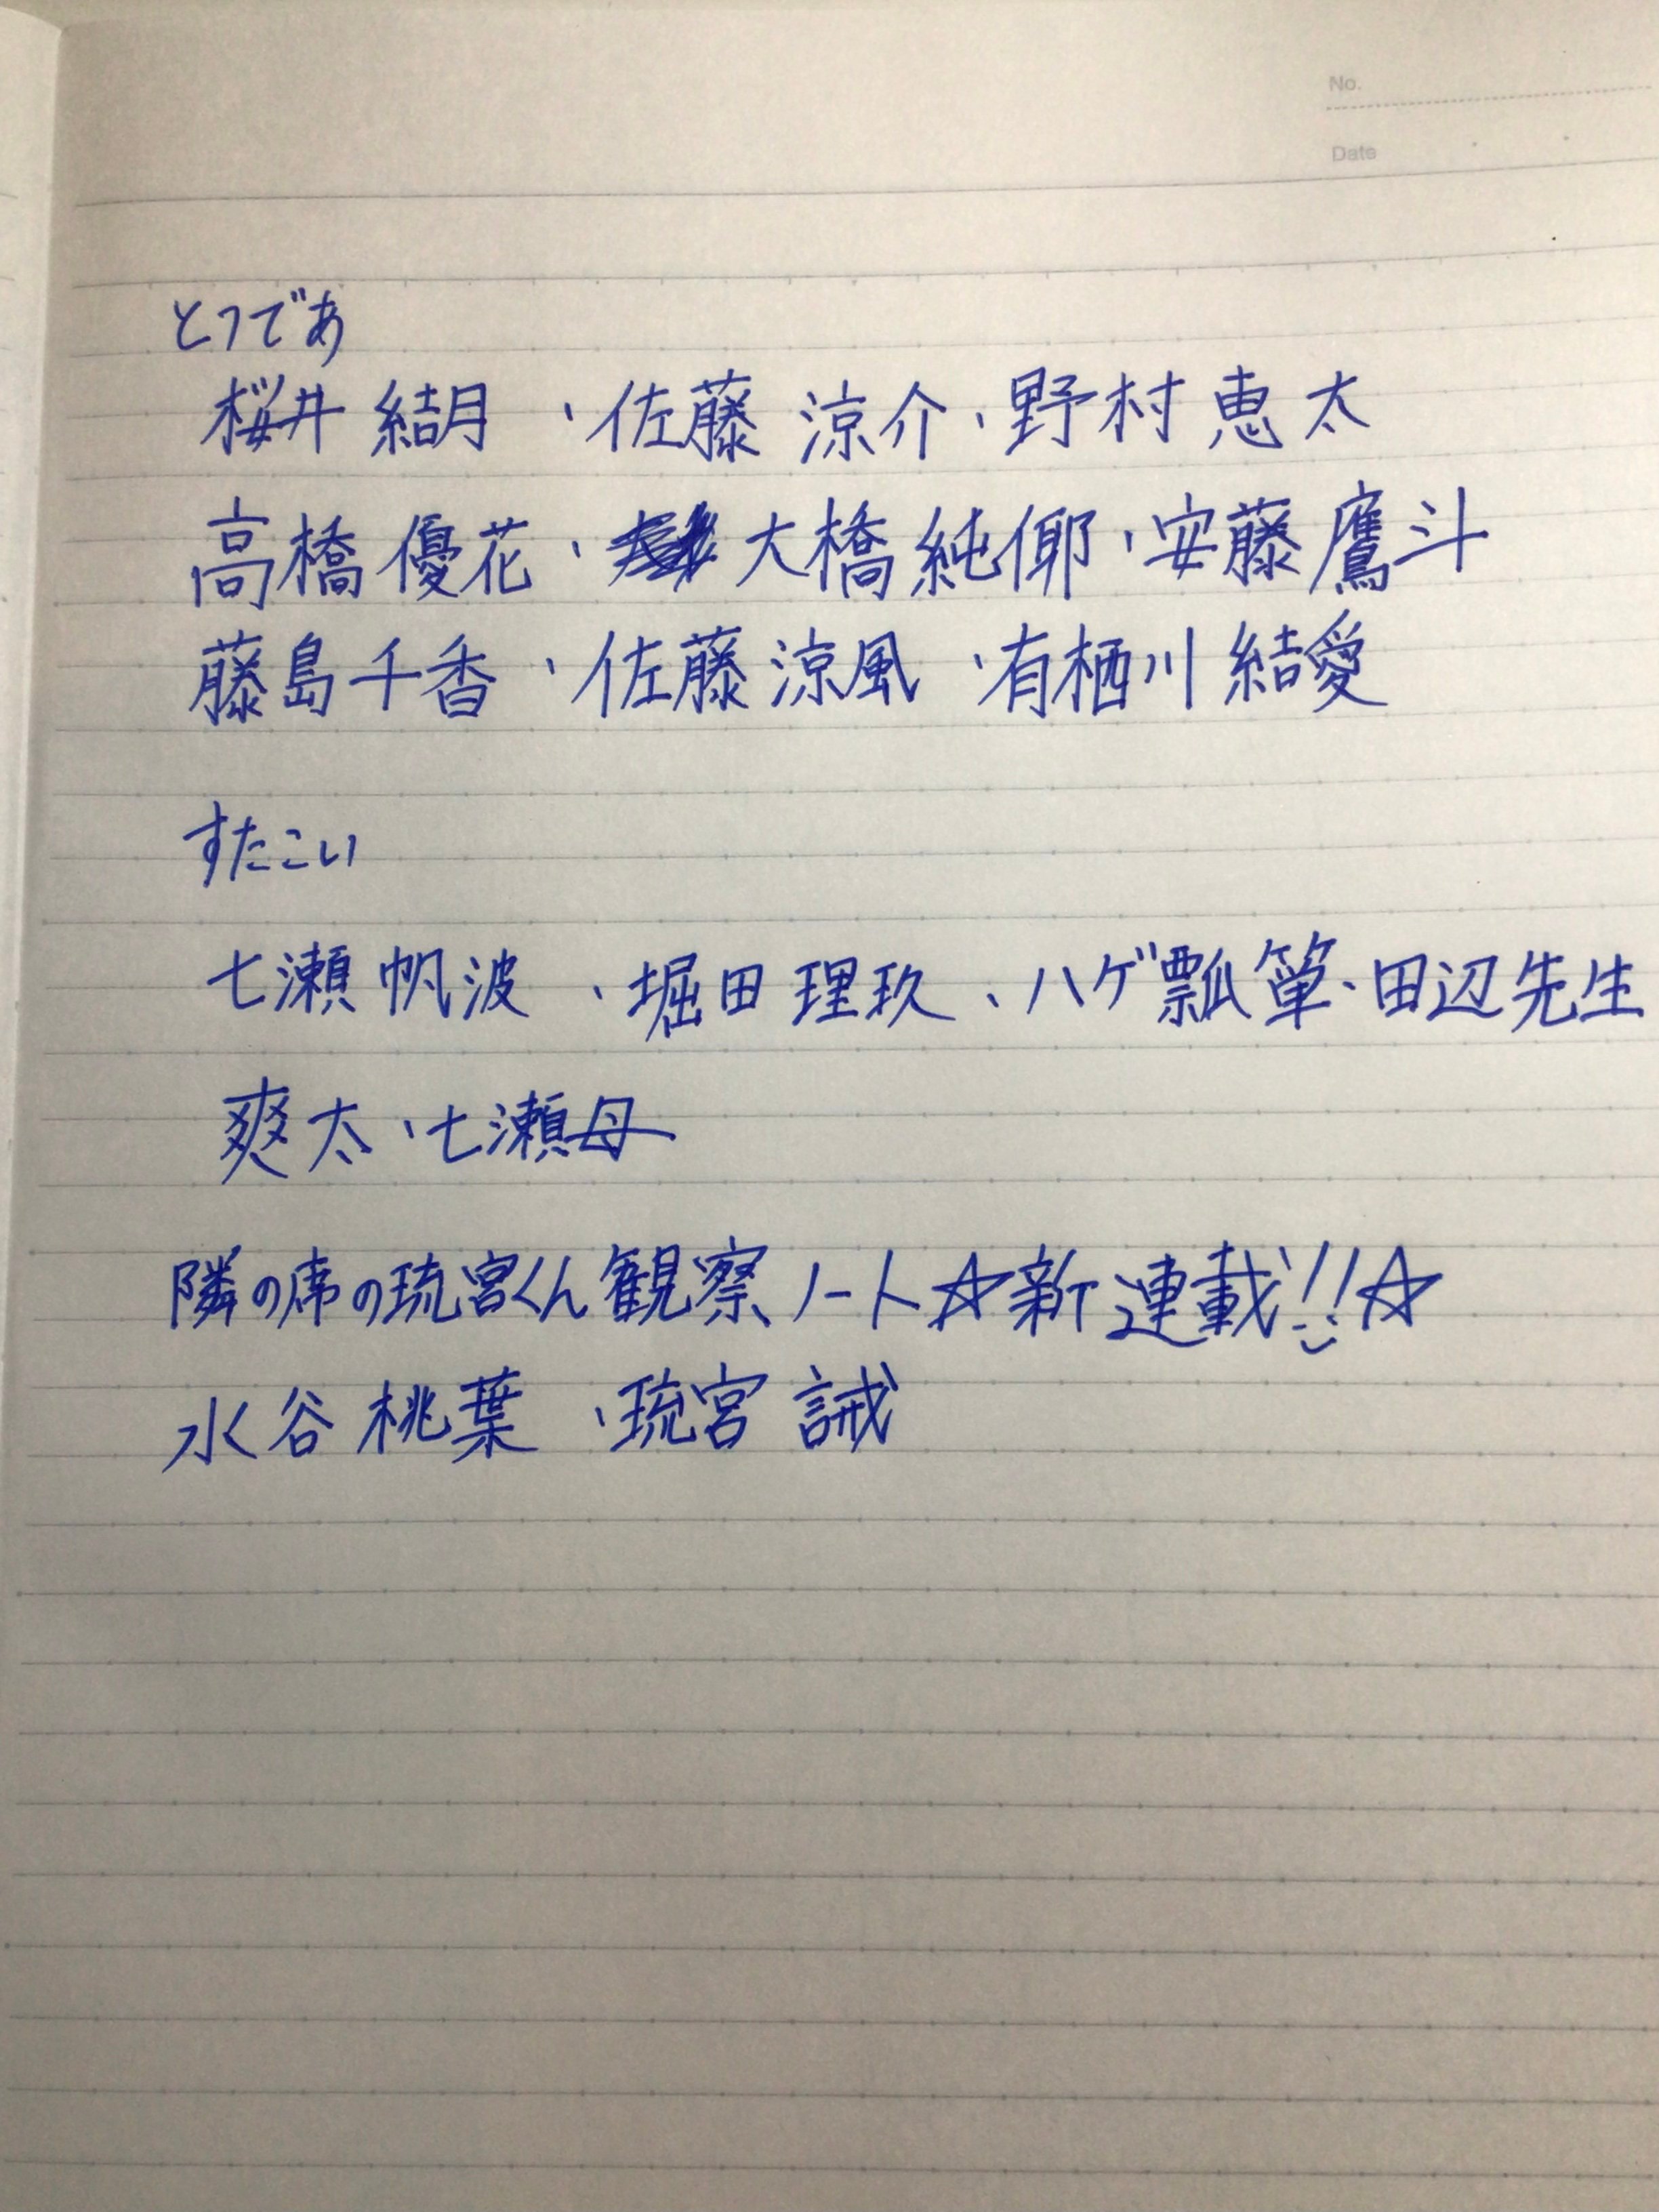 No.
Date
とつであ
桜井 結月 、佐藤 涼介、野村 恵太
高橋 優花、大橋 純倻、安藤 鷹斗
藤島千香、佐藤 涼風 、有栖川 結愛
すたこい
七瀬 帆波 、堀田 理玖、ハゲ瓢箪、田辺先生
爽太、七瀬母
隣の席の琉宮くん観察ノート☆新連載!!☆
水谷 桃葉 、琉宮 誡